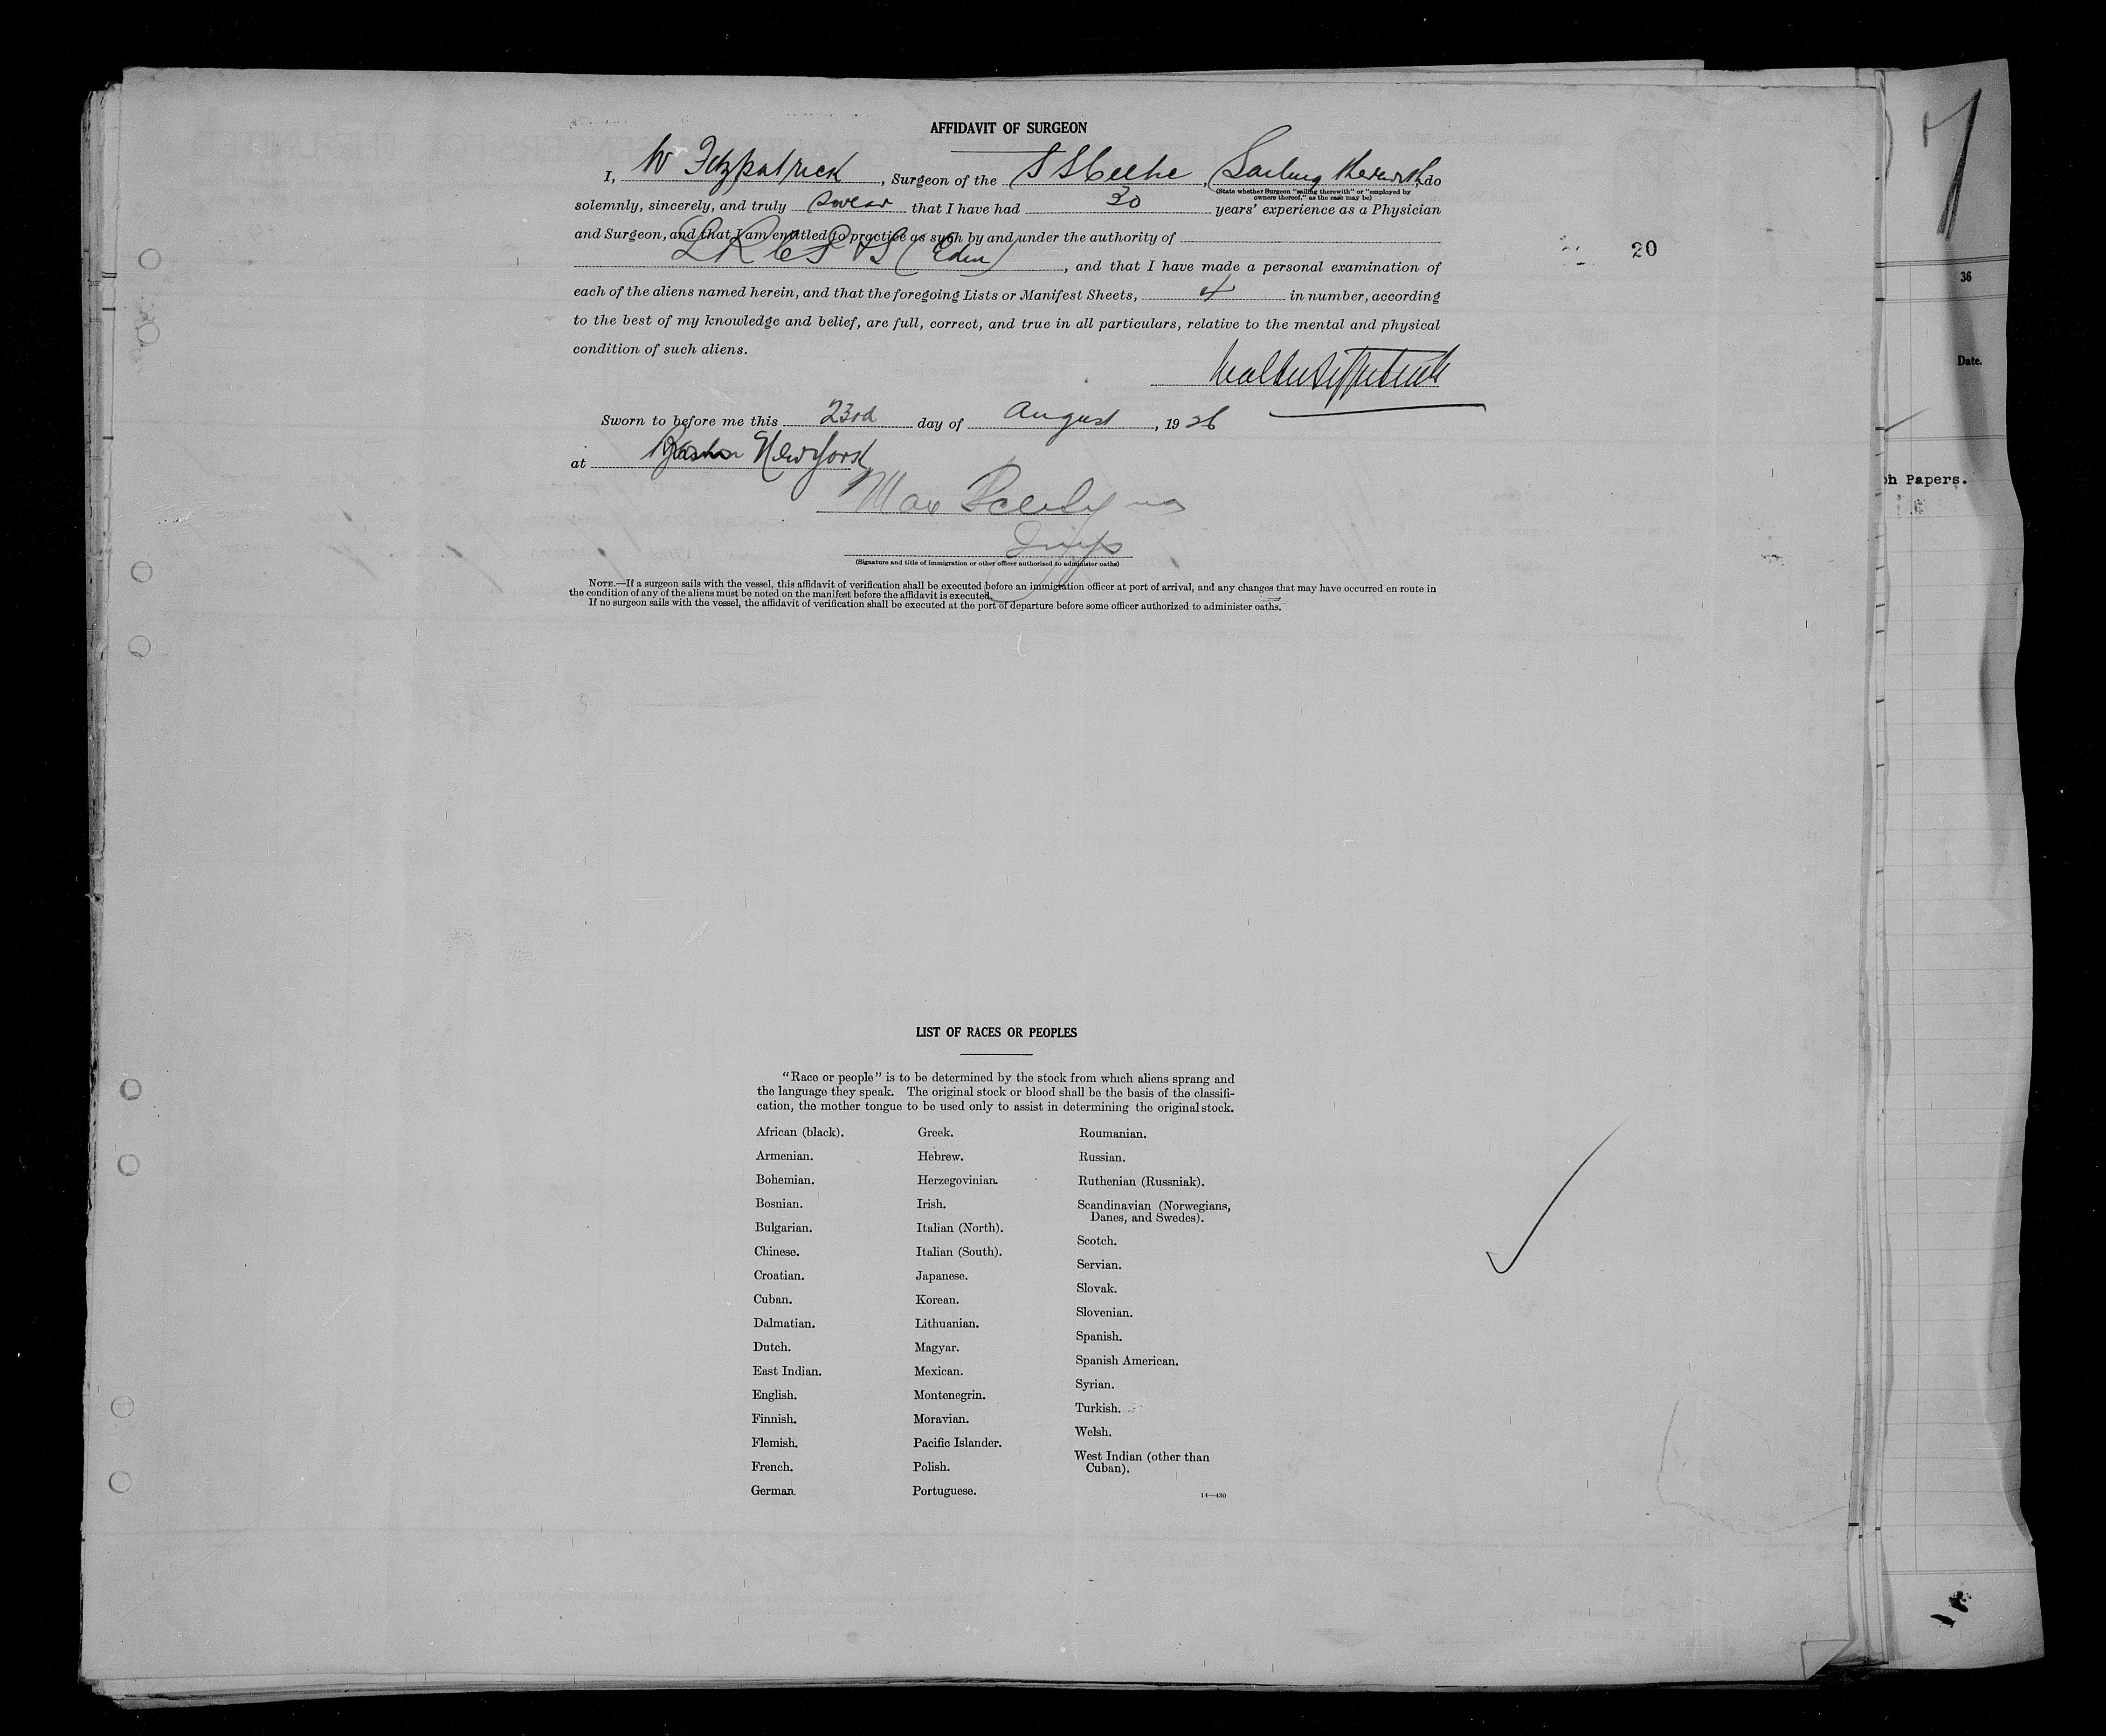 AFFIDAVIT OF SURGEON
I, W Fitzpatrick, Surgeon of the S S Celtic, Sailing therewith, do
(State whether Surgeon "sailing therewith" or "employed by
owners thereof," as the case may be)
solemnly, sincerely, and truly swear that I have had 30 years' experience as a Physician
and Surgeon, and that I am entitled to practice as such by and under the authority of
L R C S P & S (Edin), and that I have made a personal examination of
each of the aliens named herein, and that the foregoing Lists or Manifest Sheets, 4 in number, according
to the best of my knowledge and belief, are full, correct, and true in all particulars, relative to the mental and physical
condition of such aliens.
Walter Fitzpatrick
Sworn to before me this 23rd day of August, 1926
at Boston New York
Max
(Signature and title of immigration or other officer authorized to administer oaths)
NOTE.—If a surgeon sails with the vessel, this affidavit of verification shall be executed before an immigration officer at port of arrival, and any changes that may have occurred en route in
the condition of any of the aliens must be noted on the manifest before the affidavit is executed.
If no surgeon sails with the vessel, the affidavit of verification shall be executed at the port of departure before some officer authorized to administer oaths.
20
36
Date.
Papers.
LIST OF RACES OR PEOPLES
"Race or people" is to be determined by the stock from which aliens sprang and
the language they speak. The original stock or blood shall be the basis of the classifi-
cation, the mother tongue to be used only to assist in determining the original stock.
African (black).
Armenian.
Bohemian.
Bosnian.
Bulgarian.
Chinese.
Croatian.
Cuban.
Dalmatian.
Dutch.
East Indian.
English.
Finnish.
Flemish.
French.
German.
Greek.
Hebrew.
Herzegovinian.
Irish.
Italian (North).
Italian (South).
Japanese.
Korean.
Lithuanian.
Magyar.
Mexican.
Montenegrin.
Moravian.
Pacific Islander.
Polish.
Portuguese.
Roumanian.
Russian.
Ruthenian (Russniak).
Scandinavian (Norwegians,
Danes, and Swedes).
Scotch.
Servian.
Slovak.
Slovenian.
Spanish.
Spanish American.
Syrian.
Turkish.
Welsh.
West Indian (other than
Cuban).
14—430